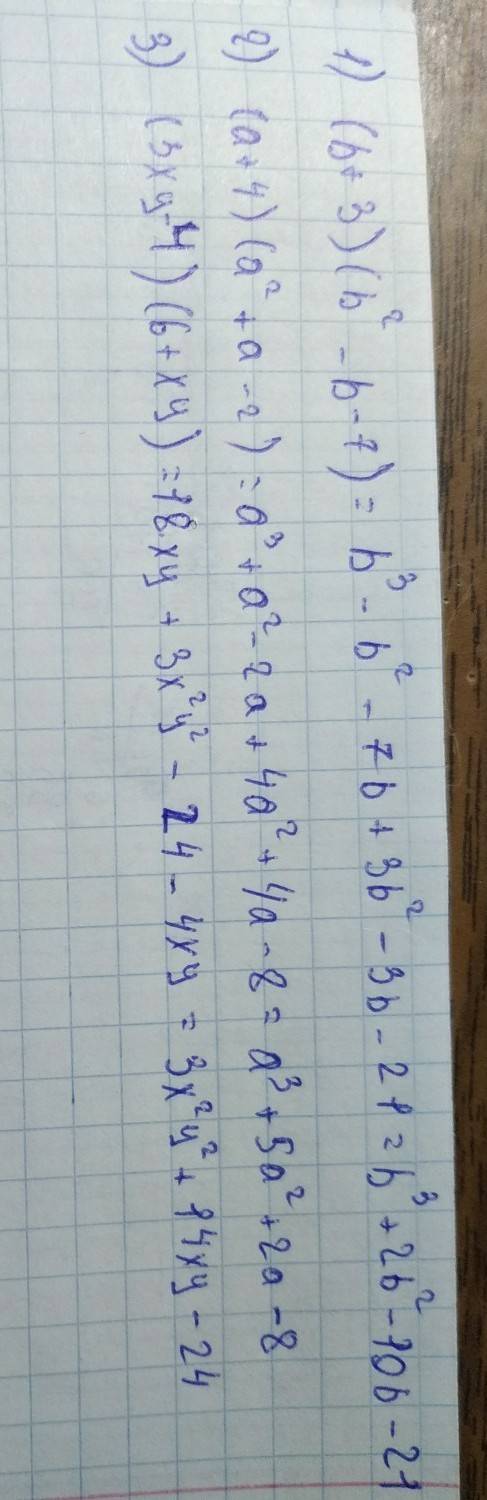 1) (b+3)(b² - b - 7) = b³ - b² - 7b + 3b² - 3b - 21 = b³ + 2b² - 10b - 21
2) (a+4)(a² + a - 2) = a³ + a² - 2a + 4a² + 4a - 8 = a³ + 5a² + 2a - 8
3) (3xy-4)(6+xy) = 18xy + 3x²y² - 24 - 4xy = 3x²y² + 14xy - 24